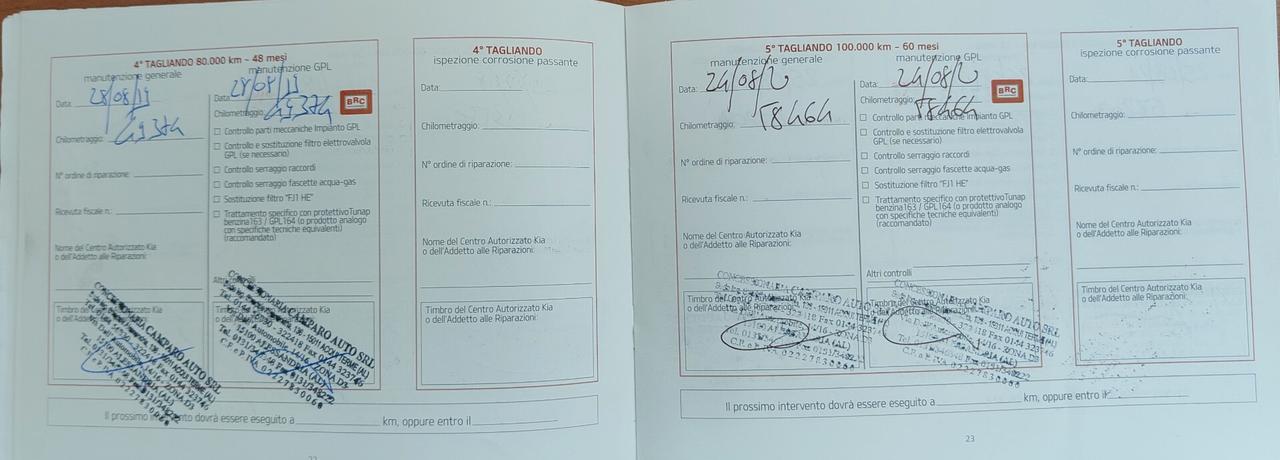 4° TAGLIANDO 80.000 km - 48 mesi
manutenzione generale
manutenzione GPL
Data: 28/08/19
Data: 28/08/19
BRC
Chilometraggio: 49374
Chilometraggio: 49374
☐ Controllo parti meccaniche Impianto GPL
☐ Controllo e sostituzione filtro elettrovalvola
GPL (se necessario)
☐ Controllo serraggio raccordi
N° ordine di riparazione:
☐ Controllo serraggio fascette acqua-gas
☐ Sostituzione filtro "FJ1 HE"
Ricevuta fiscale n.:
☐ Trattamento specifico con protettivo Tunap
benzina163 / GPL164 (o prodotto analogo
con specifiche tecniche equivalenti)
(raccomandato)
Nome del Centro Autorizzato Kia
o dell'Addetto alle Riparazioni:
Altri controlli
Timbro del Centro Autorizzato Kia
o dell'Addetto alle Riparazioni
CONCESSIONARIA CAMPARO AUTO SRL
CONCESSIONARIA CAMPARO AUTO SRL
4° TAGLIANDO
ispezione corrosione passante
Data:
Chilometraggio:
N° ordine di riparazione:
Ricevuta fiscale n.:
Nome del Centro Autorizzato Kia
o dell'Addetto alle Riparazioni:
Timbro del Centro Autorizzato Kia
o dell'Addetto alle Riparazioni:
Il prossimo intervento dovrà essere eseguito a km, oppure entro il
22
5° TAGLIANDO 100.000 km - 60 mesi
manutenzione generale
manutenzione GPL
Data: 24/08/2
Data: 24/08/2
BRC
Chilometraggio: 58464
Chilometraggio: 58464
☐ Controllo parti meccaniche Impianto GPL
☐ Controllo e sostituzione filtro elettrovalvola
GPL (se necessario)
☐ Controllo serraggio raccordi
N° ordine di riparazione:
☐ Controllo serraggio fascette acqua-gas
☐ Sostituzione filtro "FJ1 HE"
Ricevuta fiscale n.:
☐ Trattamento specifico con protettivo Tunap
benzina163 / GPL164 (o prodotto analogo
con specifiche tecniche equivalenti)
(raccomandato)
Nome del Centro Autorizzato Kia
o dell'Addetto alle Riparazioni:
Altri controlli
Timbro del Centro Autorizzato Kia
o dell'Addetto alle Riparazioni
Timbro del Centro Autorizzato Kia
CONCESSIONARIA CAMPARO AUTO
CONCESSIONARIA CAMPARO AUTO SRL
5° TAGLIANDO
ispezione corrosione passante
Data:
Chilometraggio:
N° ordine di riparazione:
Ricevuta fiscale n.:
Nome del Centro Autorizzato Kia
o dell'Addetto alle Riparazioni:
Timbro del Centro Autorizzato Kia
o dell'Addetto alle Riparazioni:
Il prossimo intervento dovrà essere eseguito a km, oppure entro il
23